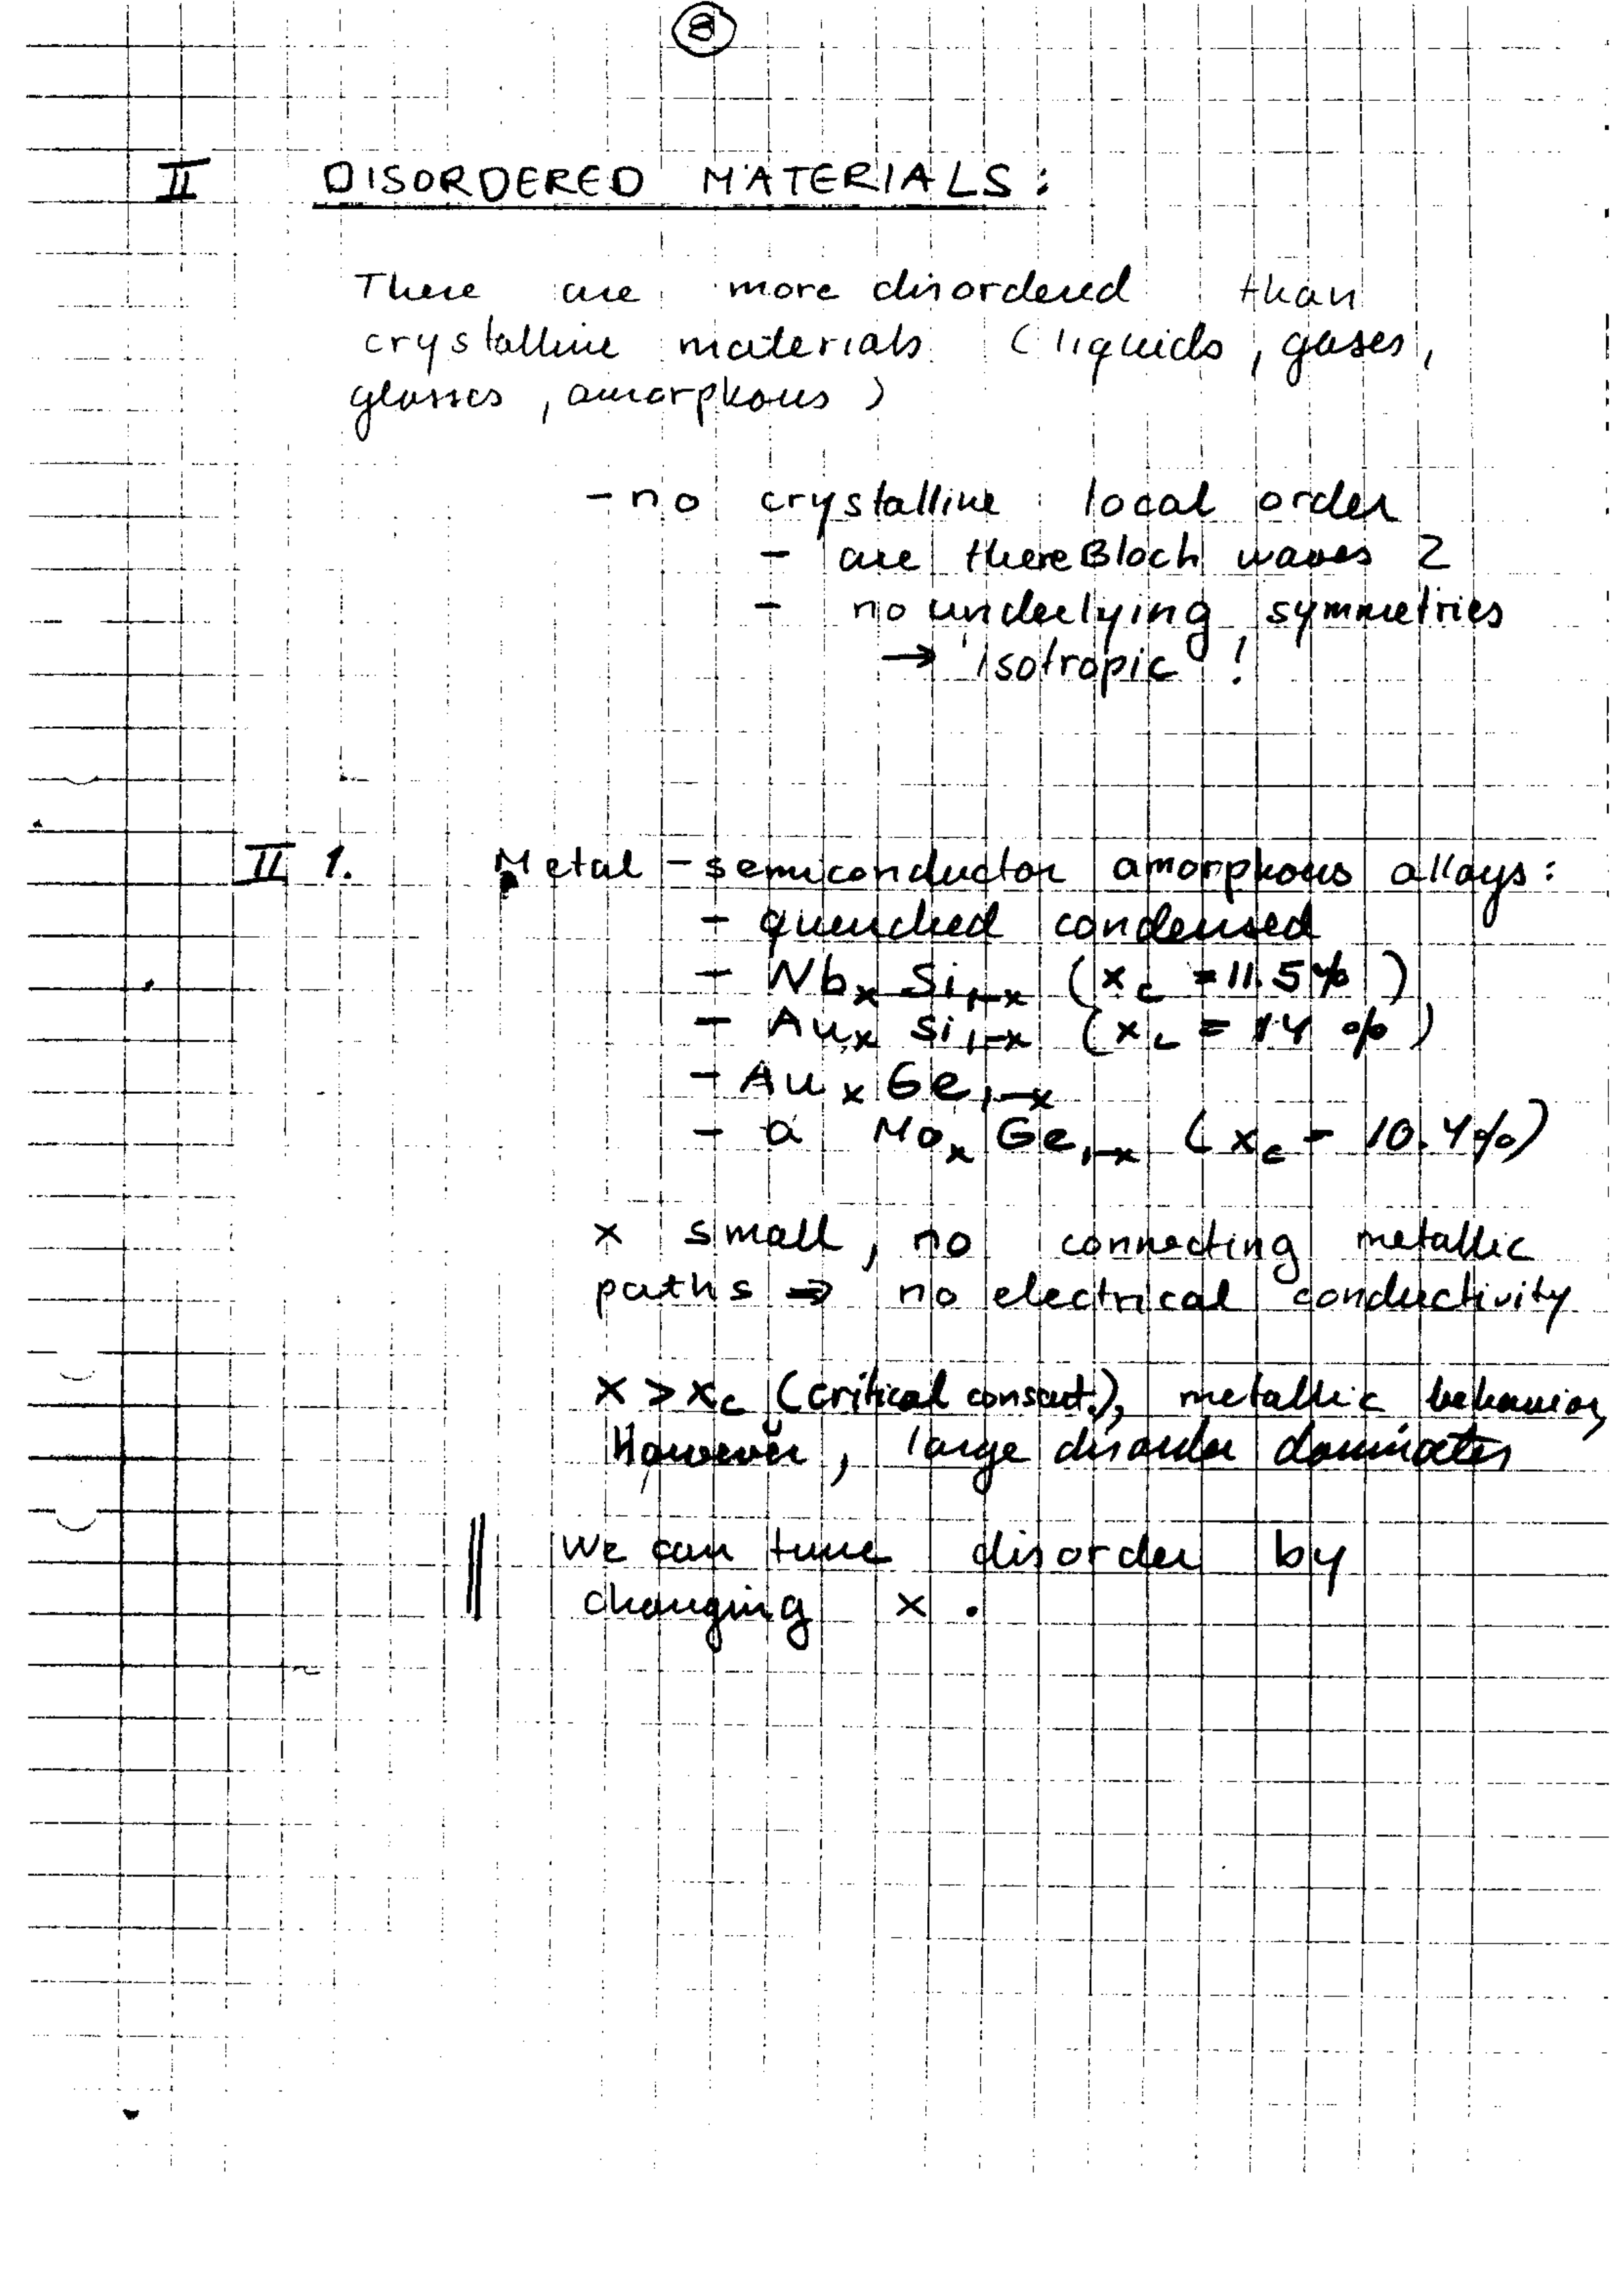 8
II DISORDERED MATERIALS:
There are more disordered than
crystalline materials (liquids, gases,
glasses, amorphous)
- no crystalline local order
- are there Bloch waves ?
- no underlying symmetries
→ isotropic !
II 1. Metal - semiconductor amorphous alloys:
- quenched condensed
- Nbₓ Si₁₋ₓ (x_c = 11.5%)
- Auₓ Si₁₋ₓ (x_c = 14 %)
- Auₓ Ge₁₋ₓ
- a Moₓ Ge₁₋ₓ (x_c = 10.4%)
x small, no connecting metallic
paths ⇒ no electrical conductivity
x > x_c (critical ), metallic behavior,
However, large disorder dominates
We can tune disorder by
changing x .